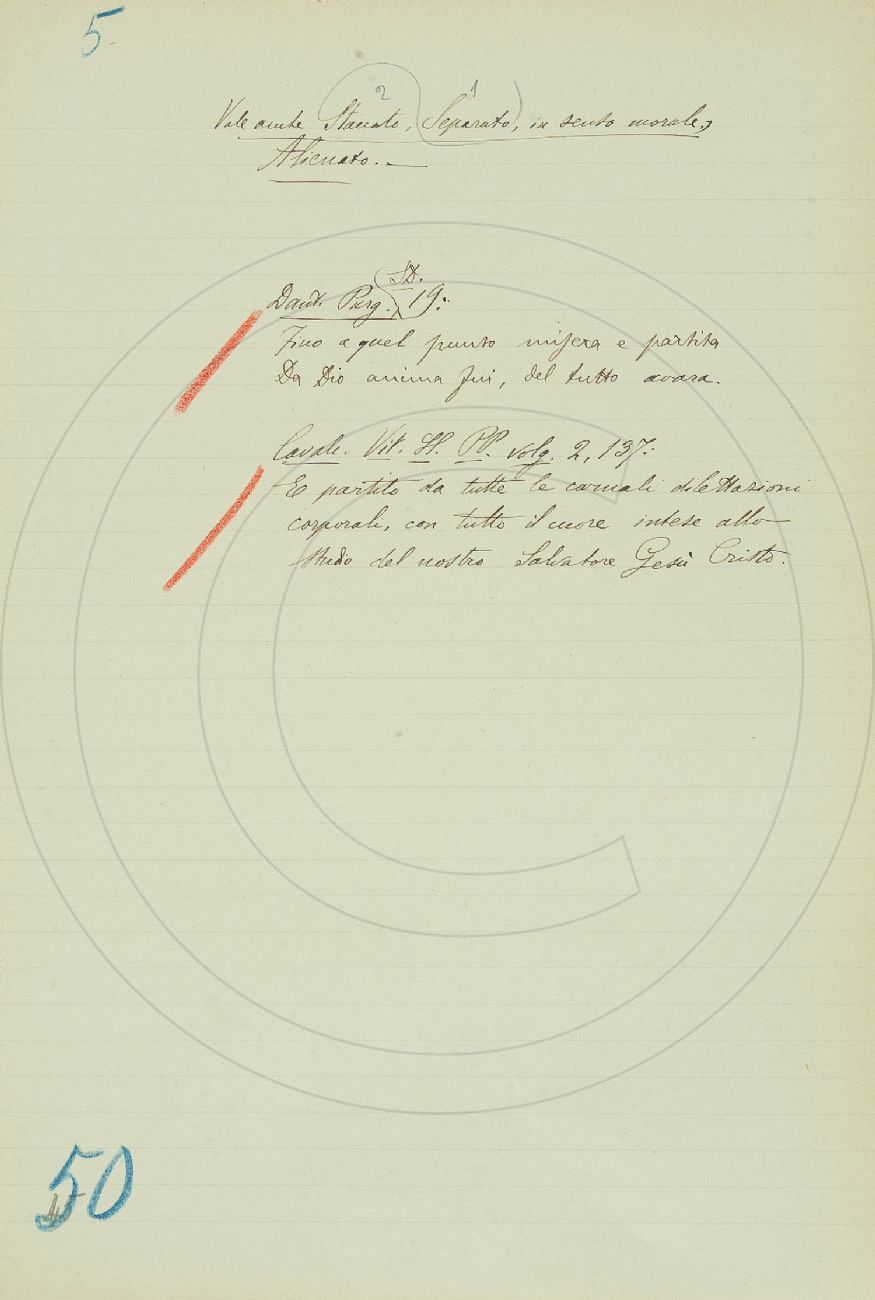 5
2 1
Vale anche Staccato, Separato, in senso morale,
Alienato. —
ID.
Dant. Purg. 19:
Fino a quel punto misera e partita
Da Dio anima fui, del tutto avara.
Cavalc. Vit. SS. PP. volg. 2, 137:
E partito da tutte le carnali dilettazioni
corporali, con tutto il cuore intese allo
studio del nostro Salvatore Gesù Cristo.
50